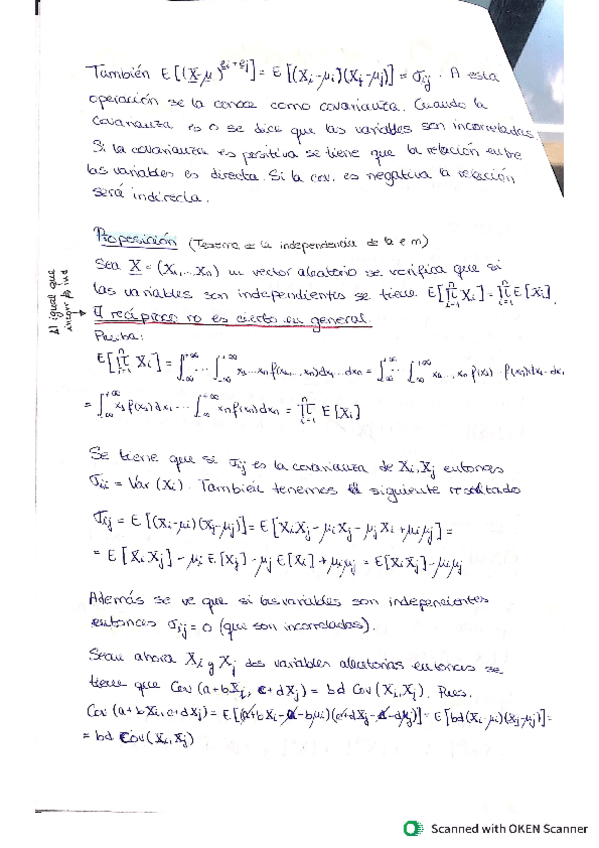 También E[(X-μ)^{ei+ej}] = E[(Xi-μi)(Xj-μj)] = σij. A esta
operación se la conoce como covarianza. Cuando la
covarianza es 0 se dice que las variables son incorreladas.
Si la covarianza es positiva se tiene que la relación entre
las variables es directa. Si la cov. es negativa la relación
será indirecta.
Proposición (Teorema de la independencia de la e m)
Sea X = (X1,...,Xn) un vector aleatorio se verifica que si
las variables son independientes se tiene E[∏_{i=1}^{n} Xi] = ∏_{i=1}^{n} E[Xi].
El recíproco no es cierto en general.
al igual que
incorr ⇏ ind
Prueba:
E[∏_{i=1}^{n} Xi] = ∫_{-∞}^{+∞} ... ∫_{-∞}^{+∞} x1...xn f(x1,...,xn)dx1...dxn = ∫_{-∞}^{+∞} ... ∫_{-∞}^{+∞} x1...xn f(x1)...f(xn)dx1...dxn
= ∫_{-∞}^{+∞} x1 f(x1)dx1 ... ∫_{-∞}^{+∞} xn f(xn)dxn = ∏_{i=1}^{n} E[Xi]
Se tiene que si σij es la covarianza de Xi, Xj entonces
σii = Var(Xi). También tenemos el siguiente resultado
σij = E[(Xi-μi)(Xj-μj)] = E[XiXj - μiXj - μjXi + μiμj] =
= E[XiXj] - μi E[Xj] - μj E[Xi] + μiμj = E[XiXj] - μiμj
Además se ve que si las variables son independientes
entonces σij = 0 (que son incorreladas).
Sean ahora Xi y Xj dos variables aleatorias entonces se
tiene que Cov(a+bXi, c+dXj) = bd Cov(Xi, Xj). Pues.
Cov(a+bXi, c+dXj) = E[(a+bXi-a-bμi)(c+dXj-c-dμj)] = E[bd(Xi-μi)(Xj-μj)] =
= bd Cov(Xi, Xj)
Scanned with OKEN Scanner